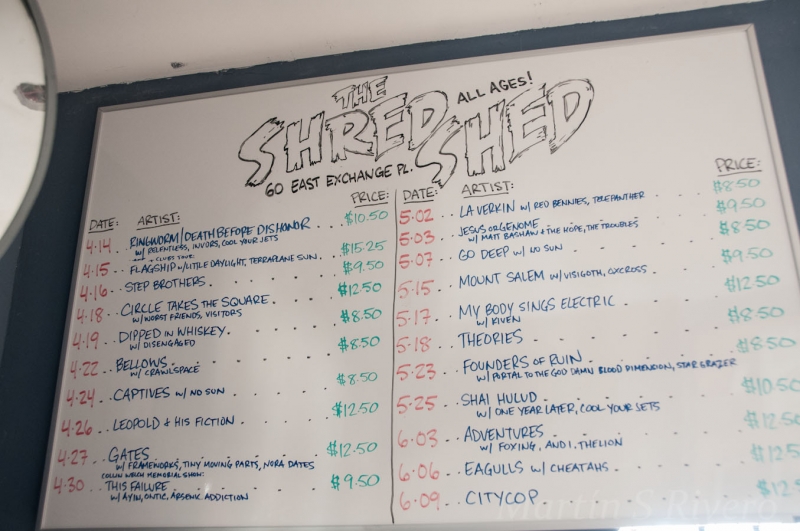 THE
SHRED SHED
ALL AGES!
60 EAST EXCHANGE PL.
DATE: ARTIST: PRICE:
4·14 RINGWORM/DEATH BEFORE DISHONOR $10.50
W/ RELENTLESS, INVORS, COOL YOUR JETS
4·15 FLAGSHIP W/LITTLE DAYLIGHT, TERRAPLANE SUN. $15.25
4·16 STEP BROTHERS $9.50
4·18 CIRCLE TAKES THE SQUARE $12.50
W/WORST FRIENDS, VISITORS
4·19 DIPPED IN WHISKEY $8.50
W/ DISENGAGED
4·22 BELLOWS $8.50
W/ CRAWLSPACE
4·24 CAPTIVES W/ NO SUN $8.50
4·26 LEOPOLD + HIS FICTION $12.50
4·27 GATES $12.50
W/ FRAMEWORKS, TINY MOVING PARTS, NORA DATES
MEMORIAL SHOW:
4·30 THIS FAILURE $9.50
W/ AYIN, ONTIC, ARSENIC ADDICTION
DATE: ARTIST: PRICE:
5·02 LAVERKIN W/ RED BENNIES, TELEPANTHER $8.50
5·03 JESUS OR GENOME $9.50
W/ MATT BASHAW + THE HOPE, THE TROUBLES
5·07 GO DEEP W/ NO SUN $8.50
5·15 MOUNT SALEM W/ VISIGOTH, OXCROSS $9.50
5·17 MY BODY SINGS ELECTRIC $12.50
W/ KIVEN
5·18 THEORIES $8.50
5·23 FOUNDERS OF RUIN $8.50
W/ PORTAL TO THE GOD DAMN BLOOD DIMENSION, STAR GRAZER
5·25 SHAI HULUD $10.50
W/ ONE YEAR LATER, COOL YOUR JETS
6·03 ADVENTURES $12.50
W/ FOXING, AND I, THE LION
6·06 EAGULLS W/ CHEATAHS $12.5
6·09 CITYCOP $12.
Martin S Rivero